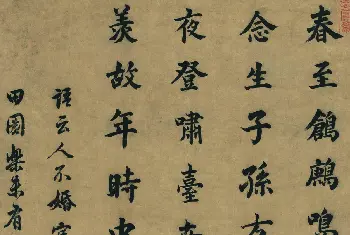 春至鶬鶊鳴
念生子孫
夜登嘯臺
羨故年時
語云人不婚宦
田園樂